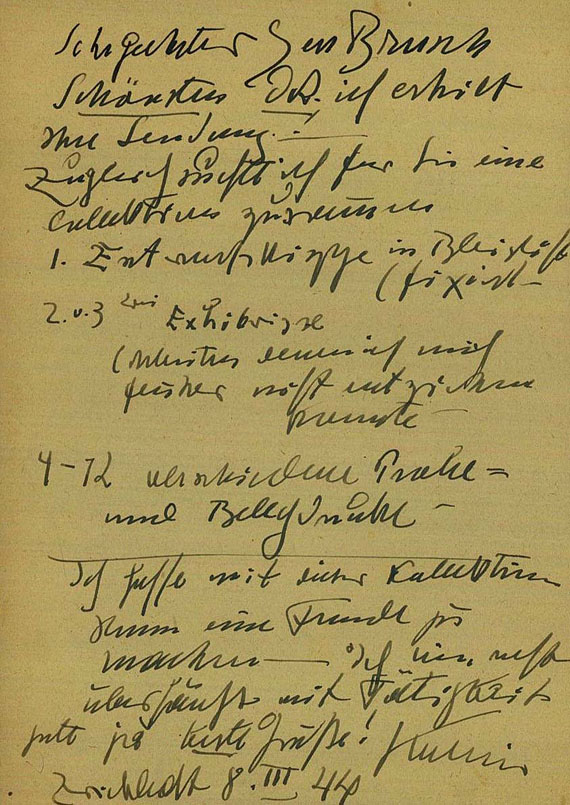 Sehr geehrter Herr
Schönsten ich erhielt
Ihre Sendung.!
Zugleich suchte ich für Sie eine
Collektion zusammen
1. Entwurfskizze in Bleistift
(fixiert –
2. u. 3 zwei Exlibrise
ich mich
früher nicht entziehen
konnte –
4–12 verschiedene Probe=
und Belegdrucke –
Ich hoffe mit dieser Kollektion
Ihnen eine Freude zu
machen — Ich bin recht
überhäuft mit Tätigkeit
beste Grüße! Kubin
Zwickledt 8. III 44